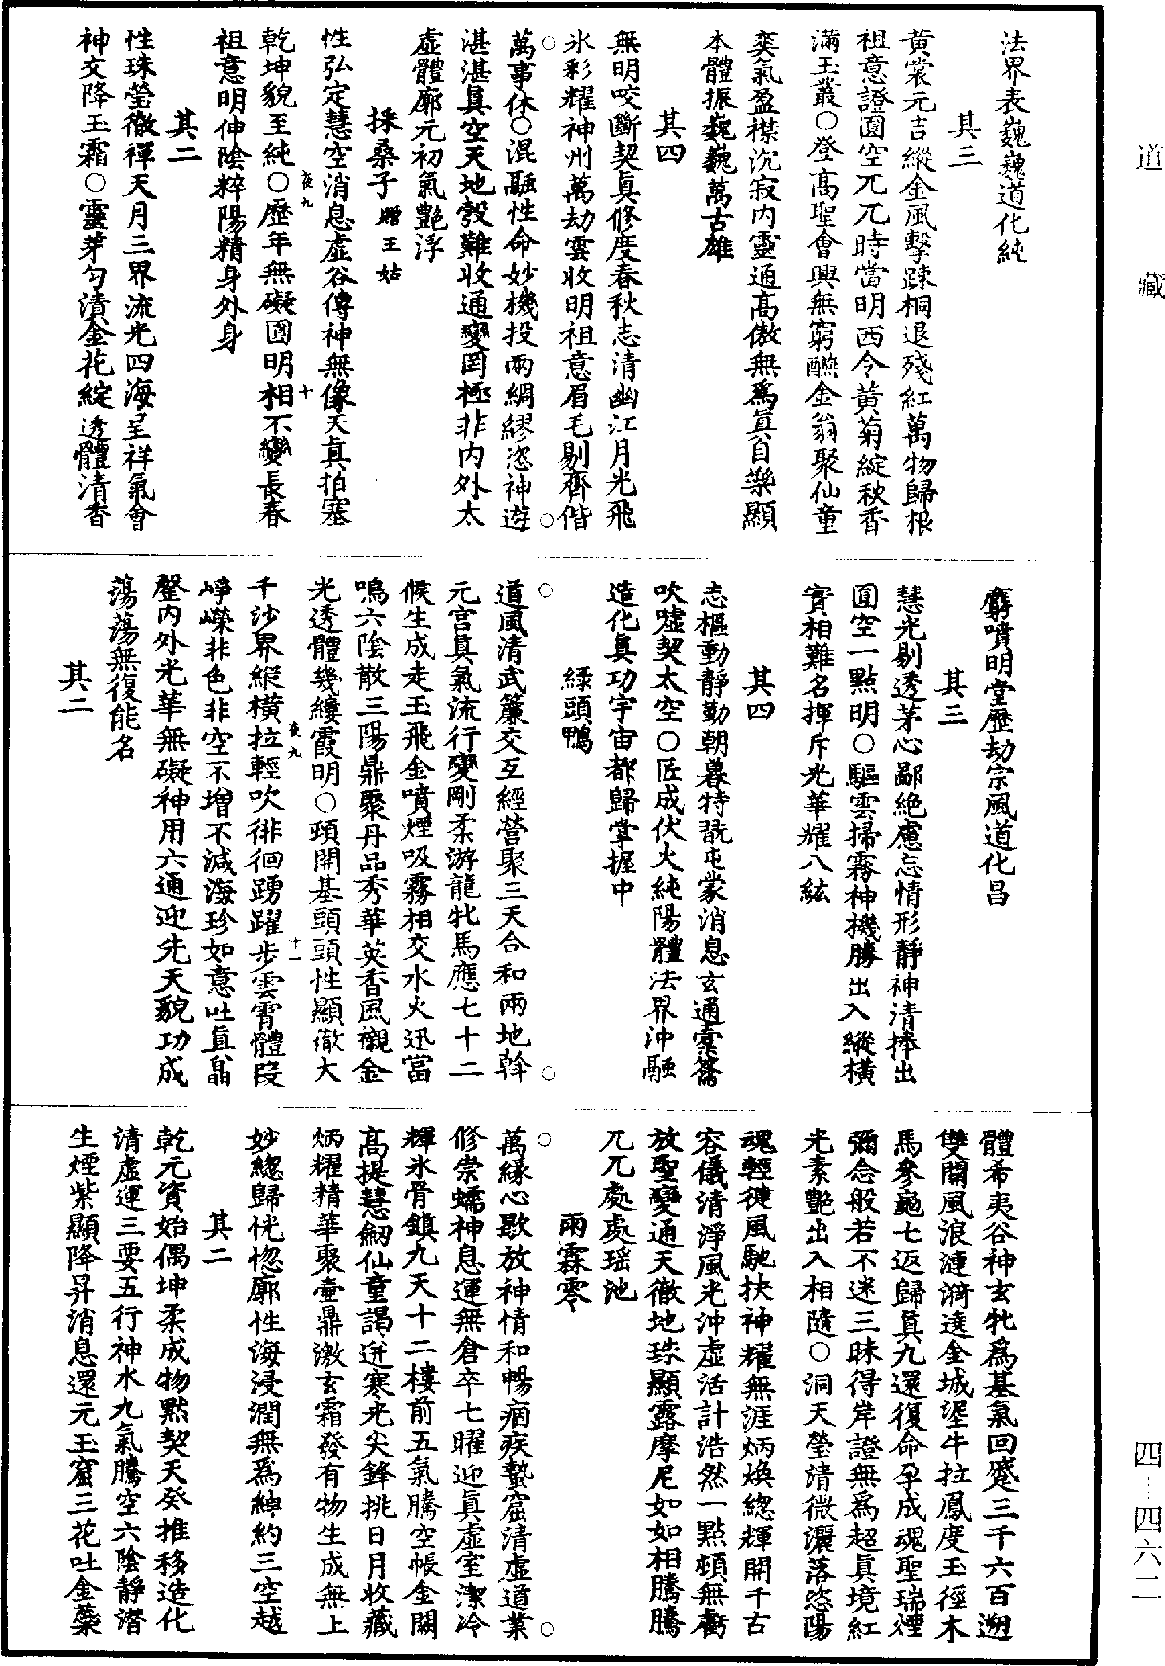 道藏
四—四六二
法界表巍巍道化純
其三
黃裳元吉縱金風擊踈桐退殘紅萬物歸根
祖意證圓空兀兀時當明西令黃菊綻秋香
滿玉叢○登高聖會興無窮醮金翁聚仙童
奕氣盈襟沉寂內靈通高傲無爲眞自樂顯
本體振巍巍萬古雄
其四
無明咬斷契眞修度春秋志清幽江月光飛
氷彩耀神州萬劫雲收明祖意眉毛剔齊偕
萬事休○混融性命妙機投兩綢繆恣神遊
湛湛眞空天地彀難收通變罔極非內外太
虛體廓元初氣艷浮
採桑子 贈王姑
性弘定慧空消息虛谷傳神無像天真拍塞
乾坤貌至純○歷年無礙圓明相不變長春
祖意明伸陰粹陽精身外身
其二
性珠瑩徹禪天月三界流光四海呈祥氣會
神交降玉霜○靈芽勻漬金花綻透體清香
麝噴明堂歷劫宗風道化昌
其三
慧光剔透茅心鄙絶慮忘情形靜神清捧出
圓空一點明○驅雲掃霧神機勝出入縱橫
實相難名揮斥光華耀八紘
其四
志樞動靜勤朝暮特翫屯蒙消息玄通橐籥
吹噓契太空○匠成伏火純陽體法界沖融
造化眞功宇宙都歸掌握中
綠頭鴨
道風清武簾交互經營聚三天合和兩地斡
元宮眞氣流行變剛柔游龍牝馬應七十二
候生成走玉飛金噴煙吸霧相交水火迅當
鳴六陰散三陽鼎聚丹品秀華英香風襯金
光透體幾縷霞明○頭開基頭頭性顯徹大
千沙界縱橫拉輕吹徘徊踴躍步雲霄體段
崢嶸非色非空不增不減海珍如意吐眞晶
罄內外光華無礙神用六通迎先天貌功成
蕩蕩無復能名
其二
體希夷谷神玄牝爲基氣回蹙三千六百遡
雙關風浪漣漪遶金城堊牛拉鳳度玉徑木
馬參龜七返歸眞九還復命孕成魂聖瑞煙
彌念般若不迷三昧得岸證無爲超眞境紅
光素艷出入相隨○洞天瑩清微灑落恣陽
魂輕健風馳扶神耀無涯炳煥總輝開千古
容儀清淨風光沖虛活計浩然一點頓無虧
放聖變通天徹地珠顯露摩尼如如相騰騰
兀兀處處瑤池
雨霖零
萬緣心歇放神情和暢痼疾蟄窟清虛道業
修崇蠕神息運無倉卒七曜迎眞虛室潔冷
輝氷骨鎮九天十二樓前五氣騰空帳金闕
高提慧劒仙童謁迸寒光尖鋒挑日月收藏
炳耀精華聚壺鼎激玄霜發有物生成無上
妙總歸恍惚廓性海浸潤無爲紳約三空越
其二
乾元資始偶坤柔成物點契天癸推移造化
清虛運三要五行神水九氣騰空六陰靜濳
生煙紫顯降昇消息還元玉窟三花吐金蘂